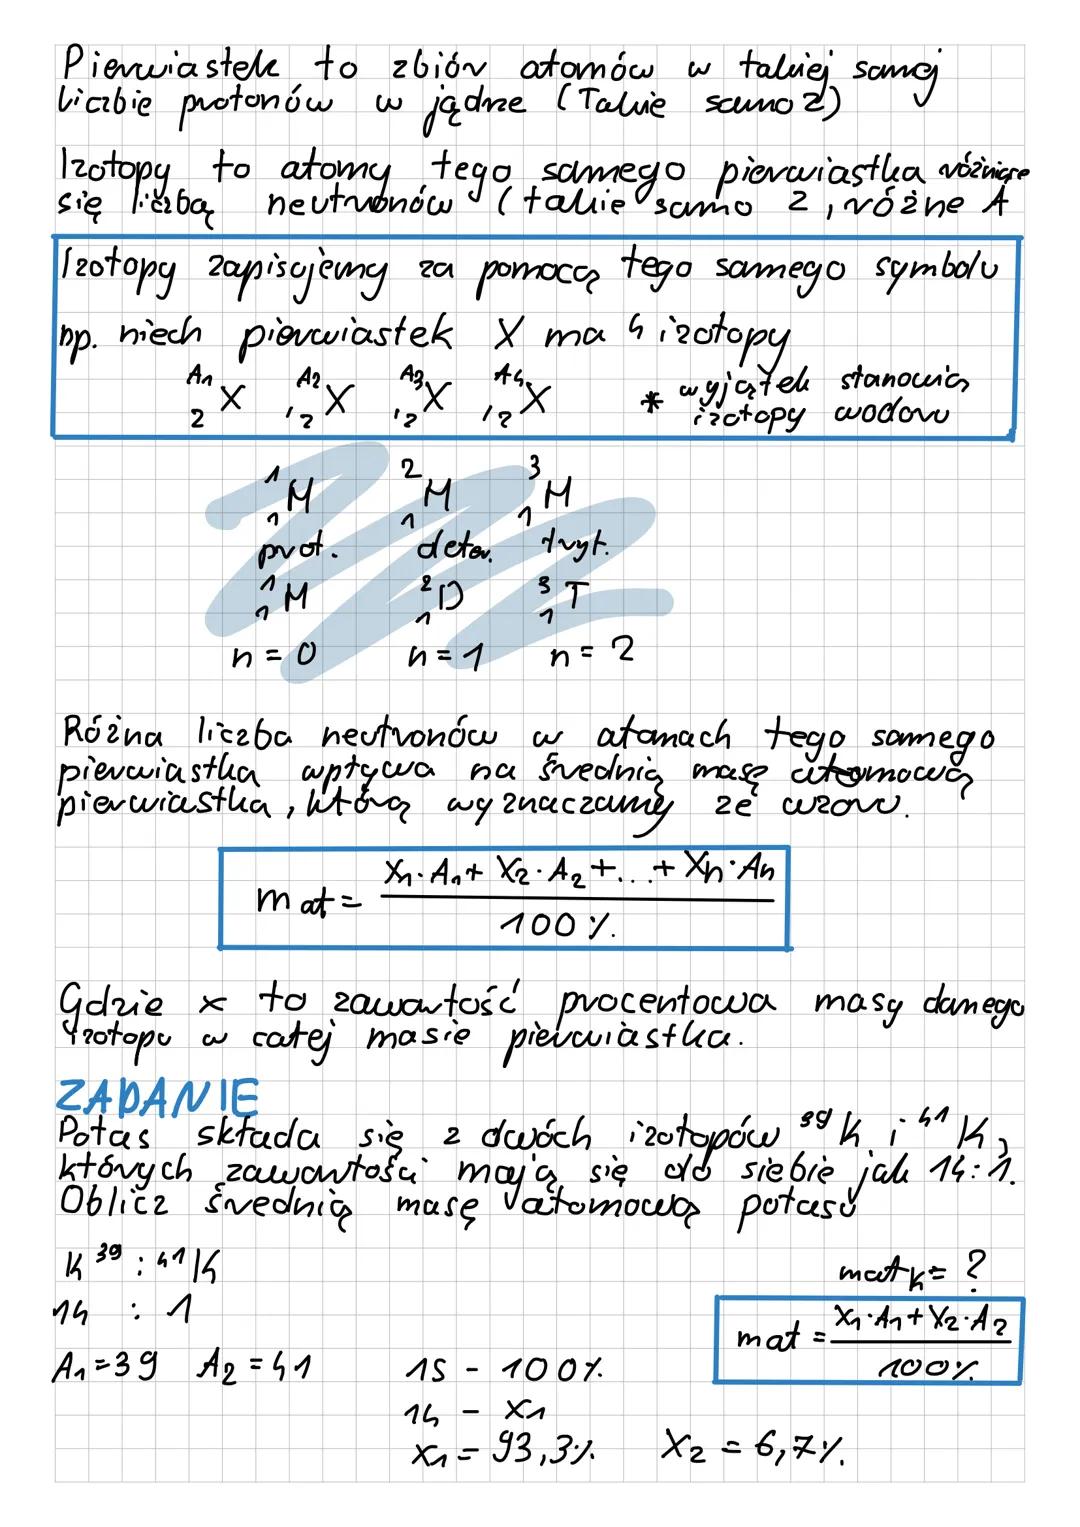 Pierwiastek to zbiór atomów w takiej samej
liczbie protonów w jądrze (Takie samo Z)
Izotopy to atomy tego samego pierwiastka różniące
się liczbą neutronów (takie samo Z, różne A
Izotopy zapisujemy za pomocą tego samego symbolu
np. niech pierwiastek X ma 4 izotopy
A1 Z X, A2 Z X, A3 Z X, A4 Z X * wyjątek stanowią
izotopy wodoru
1 1 H 2 1 H 3 1 H
prot. deter. tryt.
1 1 H 2 1 D 3 1 T
n = 0 n = 1 n = 2
Różna liczba neutronów w atomach tego samego
pierwiastka wpływa na średnią masę atomową
pierwiastka, którą wyznaczamy ze wzoru.
mat = X1·A1 + X2·A2 +...+ Xn·An / 100%
Gdzie x to zawartość procentowa masy danego
izotopu w całej masie pierwiastka.
ZADANIE
Potas składa się z dwóch izotopów 39K i 41K,
których zawartości mają się do siebie jak 14:1.
Oblicz średnią masę atomową potasu
K 39 : 41 K
mat K = ?
14 : 1
mat = X1·A1 + X2·A2 / 100%
A1 = 39 A2 = 41
15 - 100%
14 - X1
X1 = 93,3% X2 = 6,7%